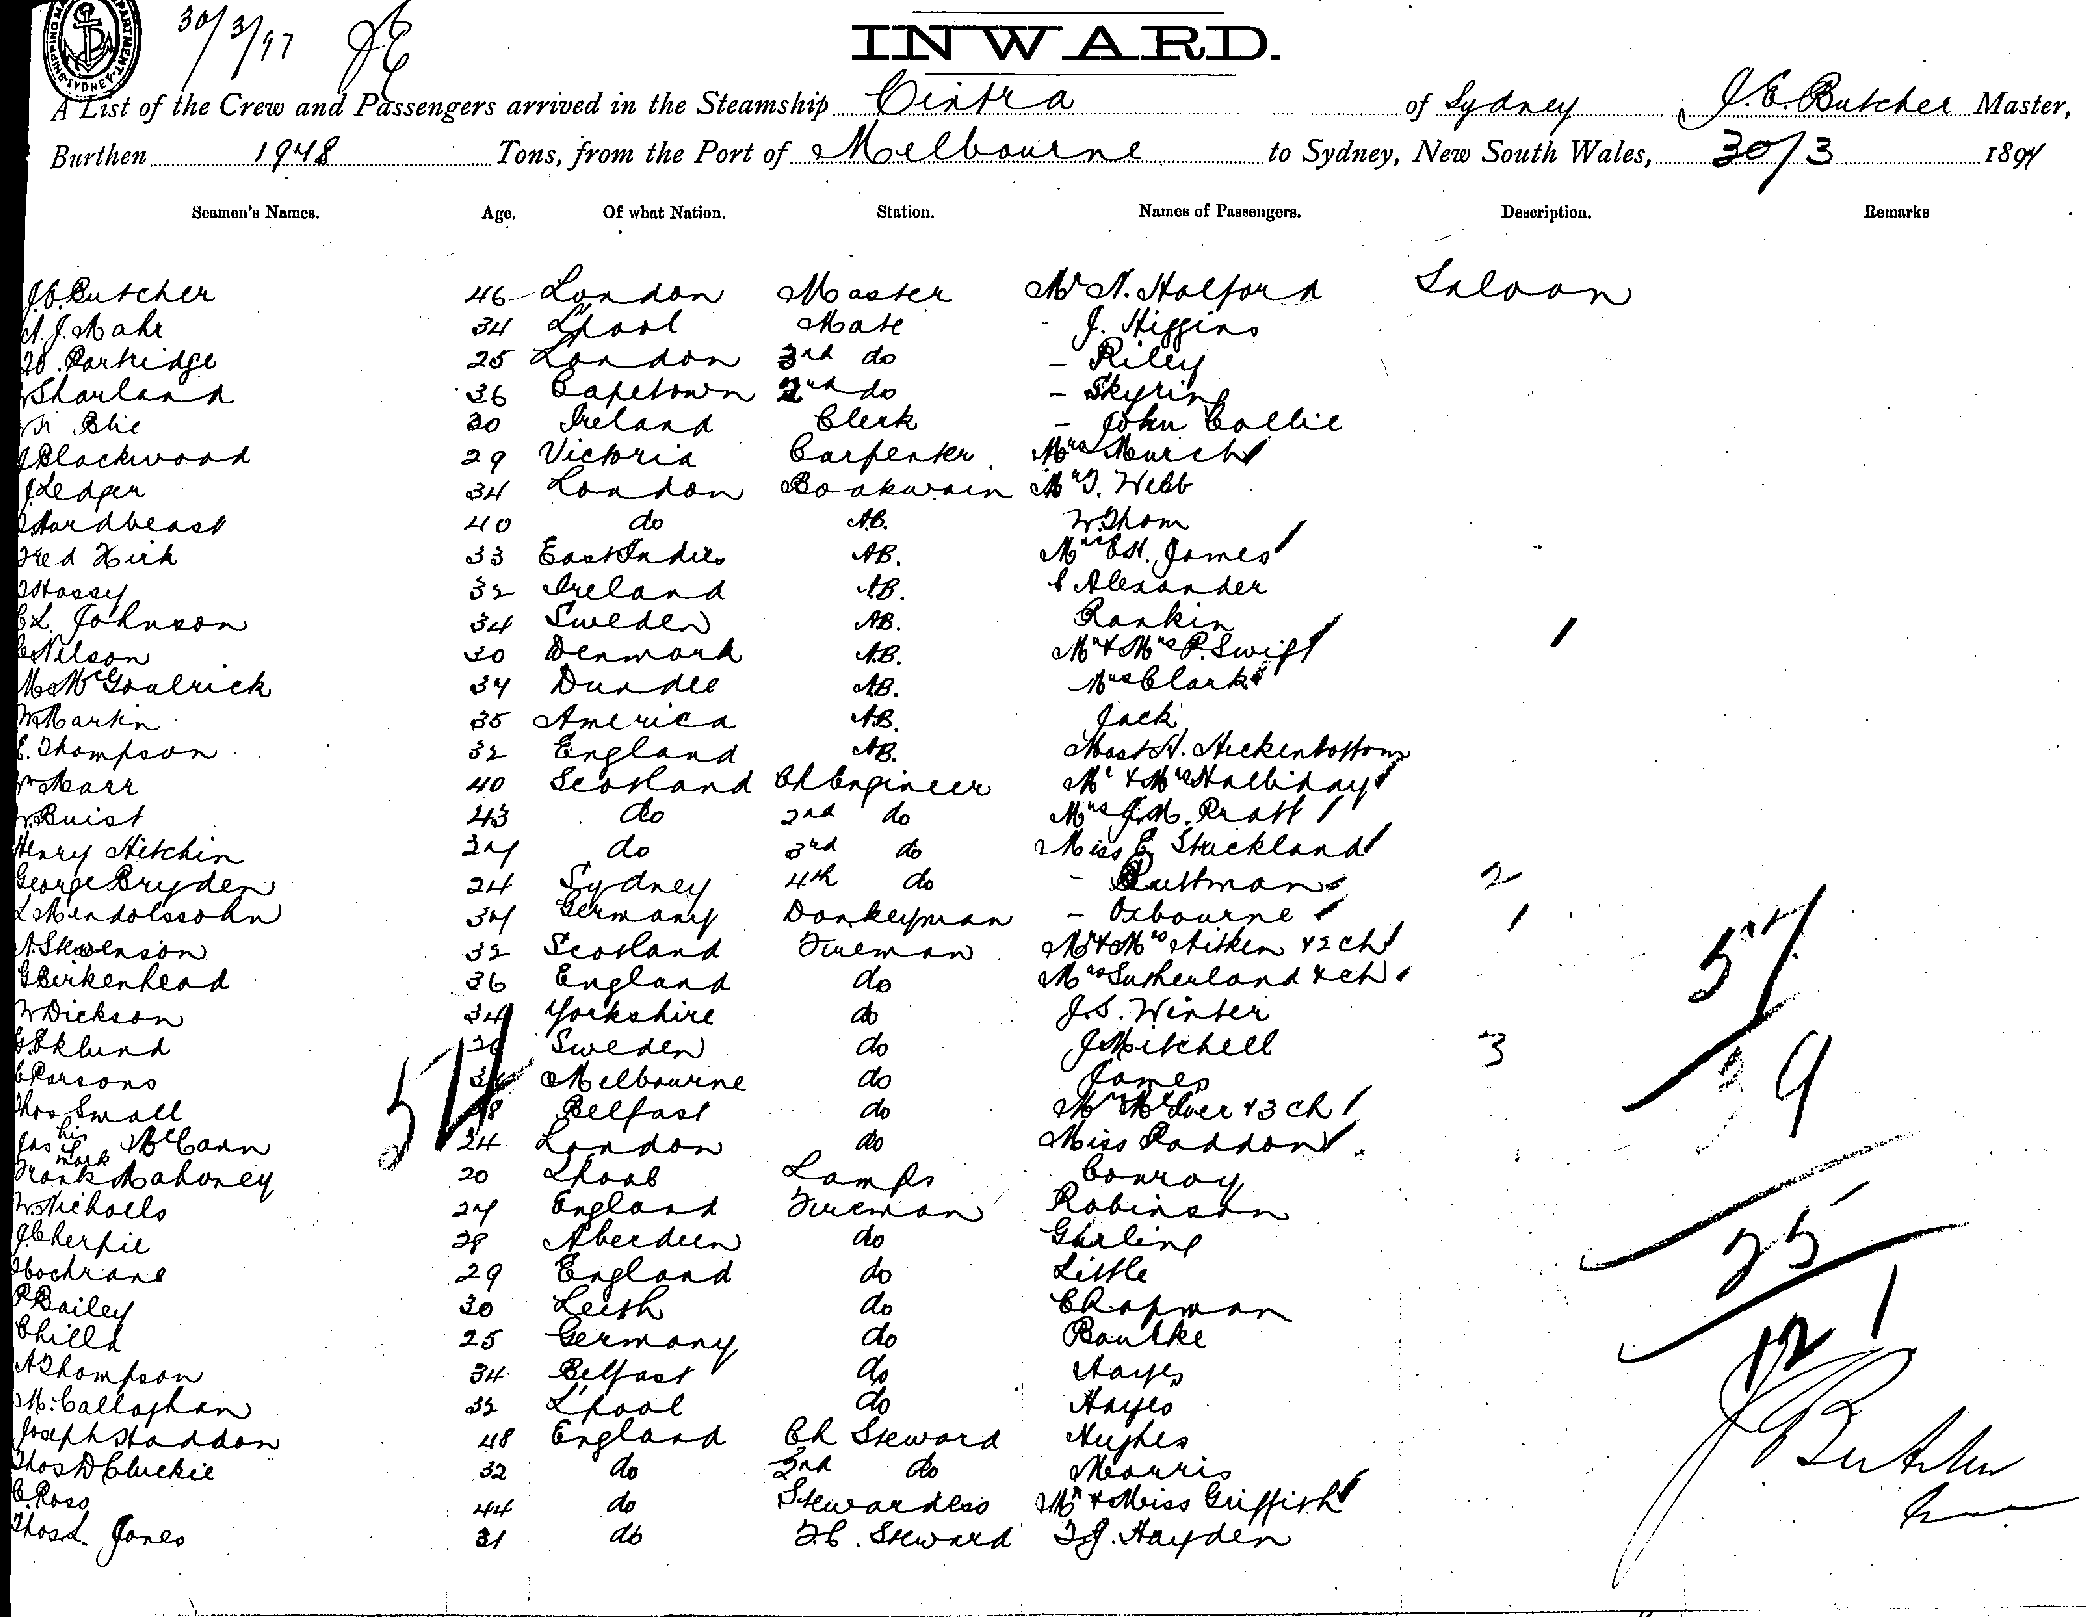 30/3/97 JE
INWARD.
A List of the Crew and Passengers arrived in the Steamship Cintra of Sydney J.C. Butcher Master,
Burthen 1948 Tons, from the Port of Melbourne to Sydney, New South Wales, 30/3 1897
Seamen's Names. Age. Of what Nation. Station. Names of Passengers. Description. Remarks
J.C. Butcher 46 London Master Mr N. Halford Saloon
J. Mahr 34 L'pool Mate - J. Higgins
Partridge 25 London 3rd do - Riley
Sharland 36 Capetown 2nd do - Skyring
30 Ireland Clerk - John Collie
J Blackwood 29 Victoria Carpenter Mrs Murch
J Ledger 34 London Boatswain Mr J. Webb
Hardbeast 40 do A.B. W. Thom
Fred Kirk 33 East Indies AB. Mrs E.H. James
Hassey 32 Ireland AB. Alexander
C L. Johnson 34 Sweden AB. Rankin
C Nelson 30 Denmark A.B. Mr & Mrs P. Swift 1
M McGoulrick 34 Dundee AB. Mrs Clark
W Martin 35 America AB. Jack
E. Thompson 32 England AB. Mast H. Hickenbottom
Wm Marr 40 Scotland Ch Engineer Mr & Mrs Halliday
W Buist 43 do 2nd do Mrs J.M. Pratt
Henry Hitchin 37 do 3rd do Miss E Stuckland
George Bryden 24 Sydney 4th do - Ruttman 2
L Mendolssohn 37 Germany Donkeyman - Osbourne 1
A. Stevenson 32 Scotland Fireman Mr & Mrs Aitken & 2 ch 57
G Birkenhead 36 England do Mrs Sutherland & ch
W Dickson 34 Yorkshire do J.S. Winter
G. Eklund 26 Sweden do J Mitchell 3
C Parsons 34 Melbourne do James 39
Thos Small 38 Belfast do Mrs McIver & 3 ch
Jas his mark McCann 24 London do Miss Paddon
Frank Mahoney 20 L'pool Lamps Conroy
W Nicholls 27 England Fireman Robinson
J Cherpie 28 Aberdeen do Girling 25
J Cochrane 29 England do Little
P Bailey 30 Leith do Chapman
C Hilld 25 Germany do Bourke 12 1
A Thompson 34 Belfast do Hayes
M. Callaghan 32 L'pool do Hayes
Joseph Haddon 48 England Ch Steward Hughes
Thos D Cluckie 32 do 2nd do Morris J Butcher
C. Ross 44 do Stewardess Mr & Miss Griffith
Thos L. Jones 31 do F.C. Steward T.J. Hayden